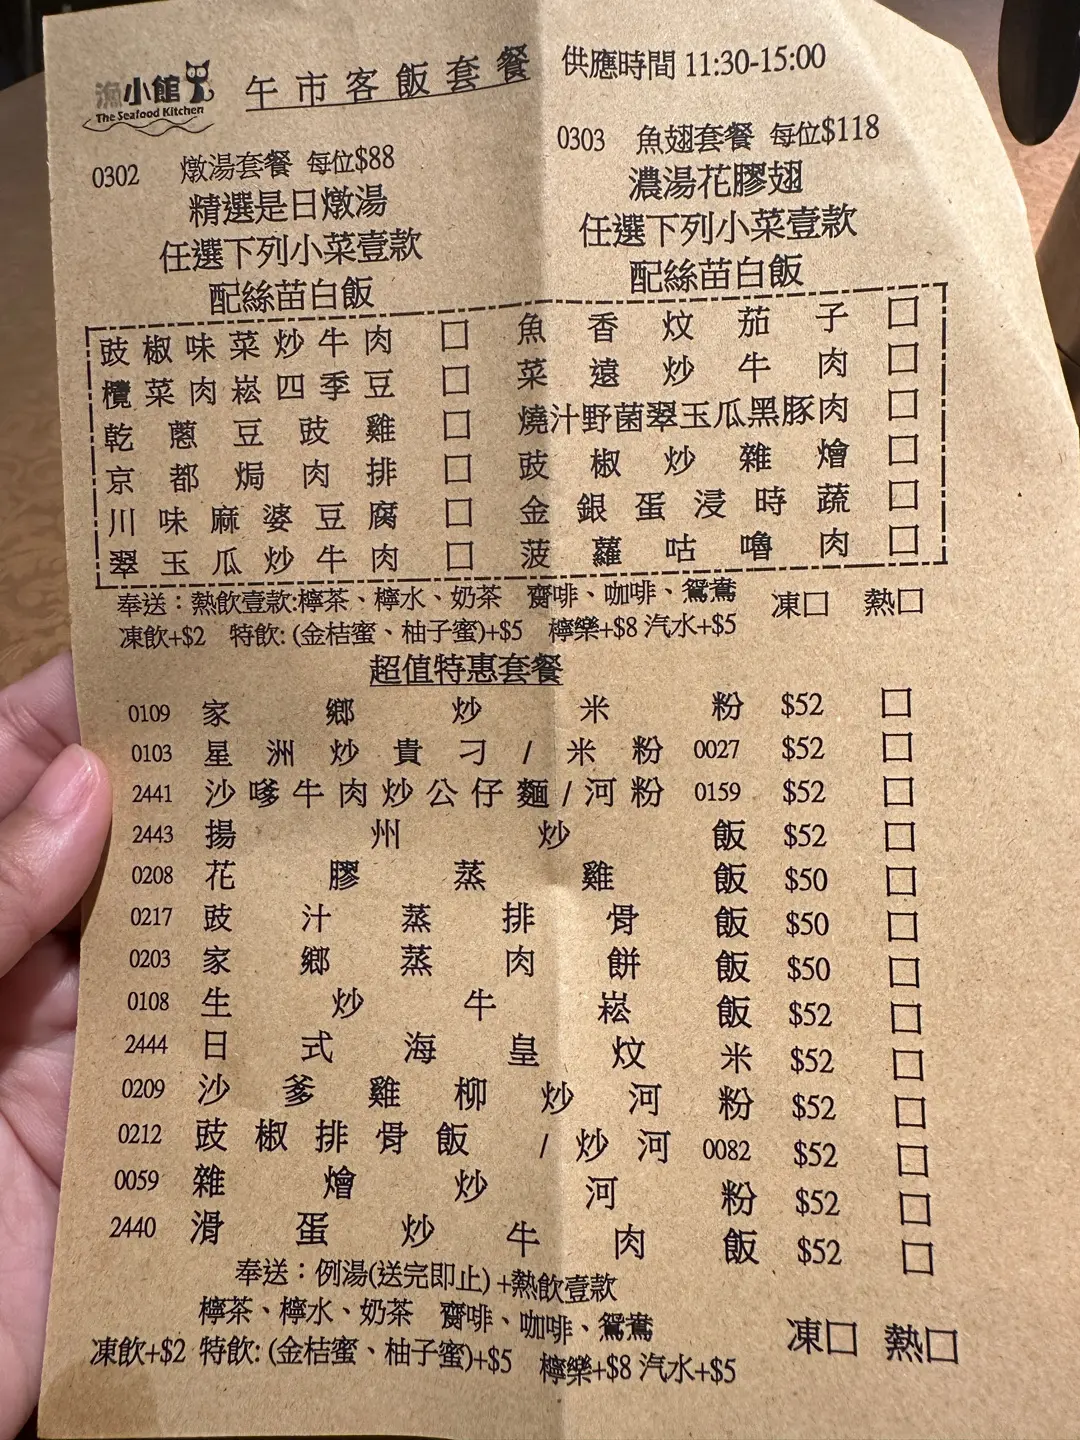 漁小館
The Seafood Kitchen
午市客飯套餐 供應時間 11:30-15:00
0302 燉湯套餐 每位$88
精選是日燉湯
任選下列小菜壹款
配絲苗白飯
0303 魚翅套餐 每位$118
濃湯花膠翅
任選下列小菜壹款
配絲苗白飯
豉椒味菜炒牛肉 口
欖菜肉崧四季豆 口
乾蔥豆豉雞 口
京都焗肉排 口
川味麻婆豆腐 口
翠玉瓜炒牛肉 口
魚香炆茄子 口
菜遠炒牛肉 口
燒汁野菌翠玉瓜黑豚肉 口
豉椒炒雜燴 口
金銀蛋浸時蔬 口
菠蘿咕嚕肉 口
奉送：熱飲壹款:檸茶、檸水、奶茶 齋啡、咖啡、鴛鴦 凍口 熱口
凍飲+$2 特飲: (金桔蜜、柚子蜜)+$5 檸樂+$8 汽水+$5
超值特惠套餐
0109 家鄉炒米粉 $52 口
0103 星洲炒貴刁/米粉 0027 $52 口
2441 沙嗲牛肉炒公仔麵/河粉 0159 $52 口
2443 揚州炒飯 $52 口
0208 花膠蒸雞飯 $50 口
0217 豉汁蒸排骨飯 $50 口
0203 家鄉蒸肉餅飯 $50 口
0108 生炒牛崧飯 $52 口
2444 日式海皇炆米 $52 口
0209 沙爹雞柳炒河粉 $52 口
0212 豉椒排骨飯 /炒河 0082 $52 口
0059 雜燴炒河粉 $52 口
2440 滑蛋炒牛肉飯 $52 口
奉送：例湯(送完即止) +熱飲壹款
檸茶、檸水、奶茶 齋啡、咖啡、鴛鴦 凍口 熱口
凍飲+$2 特飲: (金桔蜜、柚子蜜)+$5 檸樂+$8 汽水+$5